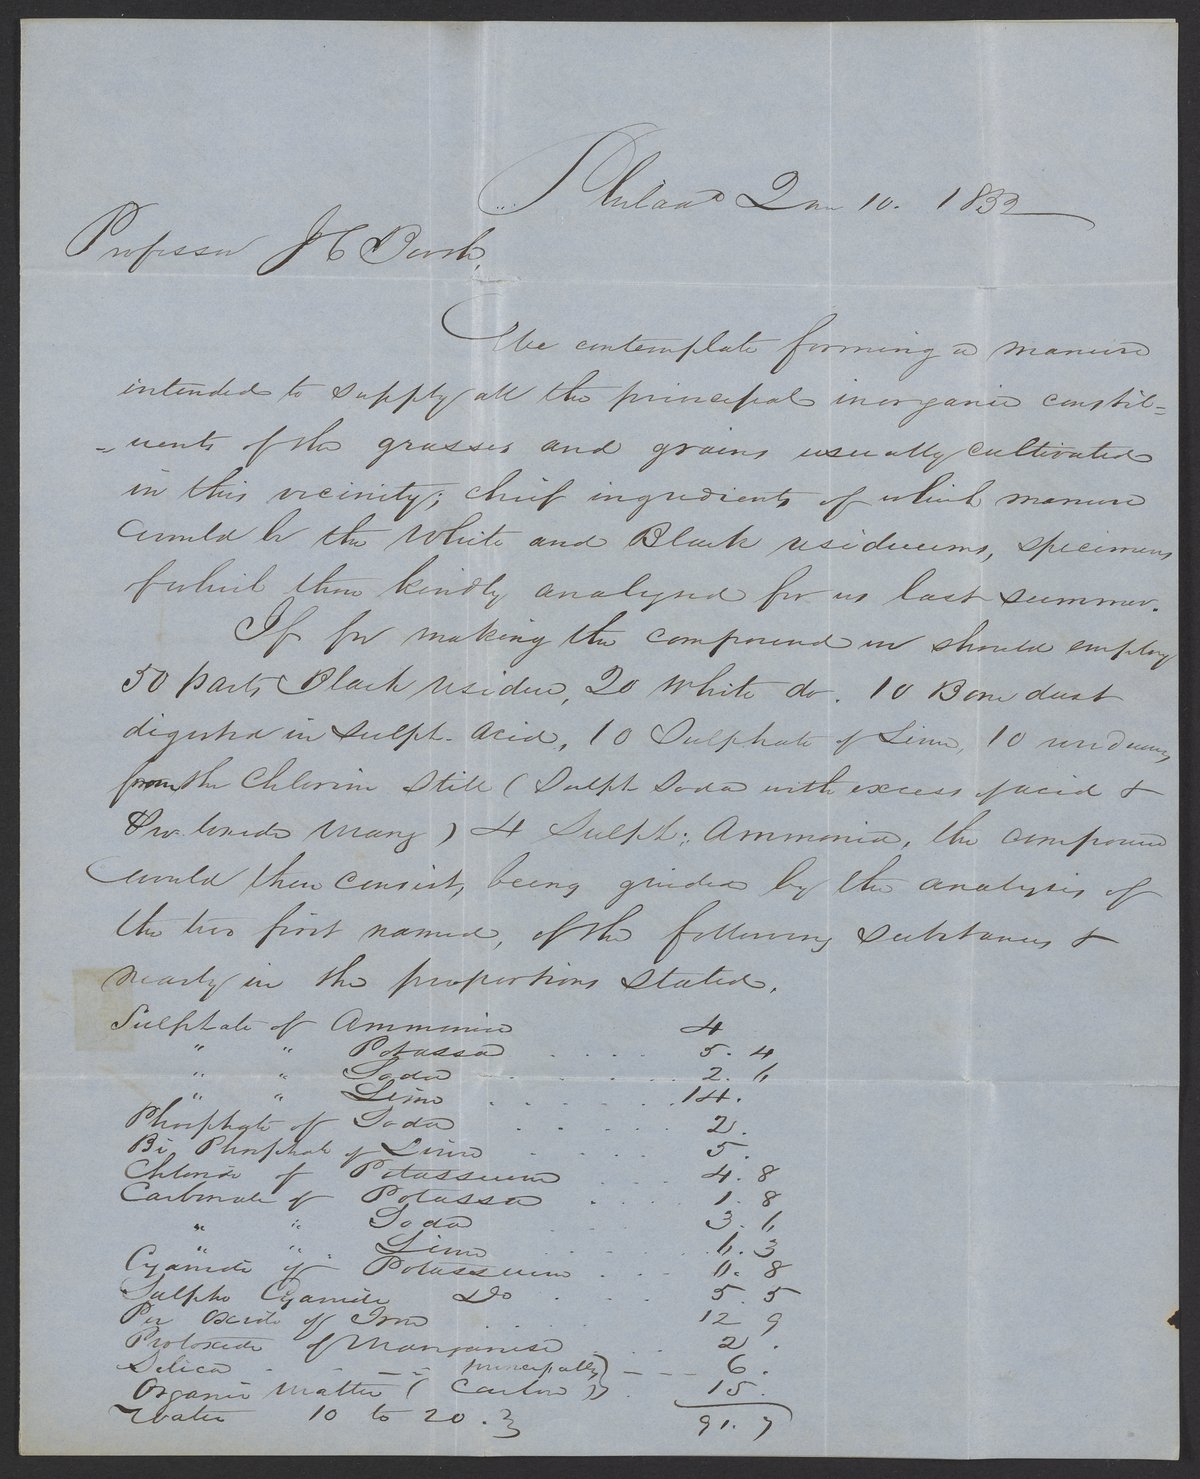 Philad<sup>a</sup> Jan 10. 1852
Professor J C Booth,
We contemplate forming a manure
intended to supply all the principal inorganic constit=
=uents of the grasses and grains usually cultivated
in this vicinity; chief ingredients of which manure
would be the White and Black residuums, specimens
of which thou kindly analyzed for us last summer.
If for making the compound we should employ
50 parts Black residue, 20 White do. 10 Bone dust
digested in sulph. acid, 10 Sulphate of Lime, 10 residuum
from the Chlorine Still (Sulph Soda with excess of acid &
Protoxide Mang) 4 Sulph: Ammonia, the compound
would then consist, being guided by the analysis of
the two first named, of the following substances &
nearly in the proportions stated.
Sulphate of Ammonia 4
" " Potassa . . . . 5. 4
" " Soda . . . . . . 2. 6
" " Lime . . . . . . 14.
Phosphate of Soda . . . . . 2.
Bi Phosphate of Lime . . . . 5.
Chloride of Potassium . . . 4. 8
Carbonate of Potassa . . . . 1. 8
" " Soda . . . . 3. 6
" " Lime . . . . . 6. 3
Cyanide of Potassium . . . 0. 8
Sulpho Cyanide Do . . . . 5. 5
Per Oxide of Iron . . . . 12 9
Protoxide of Manganese . . . 2 .
Silica - - - - - - - 6 .
Organic Matter (principally Carbon) . 15.
Water 10 to 20. 91. 7